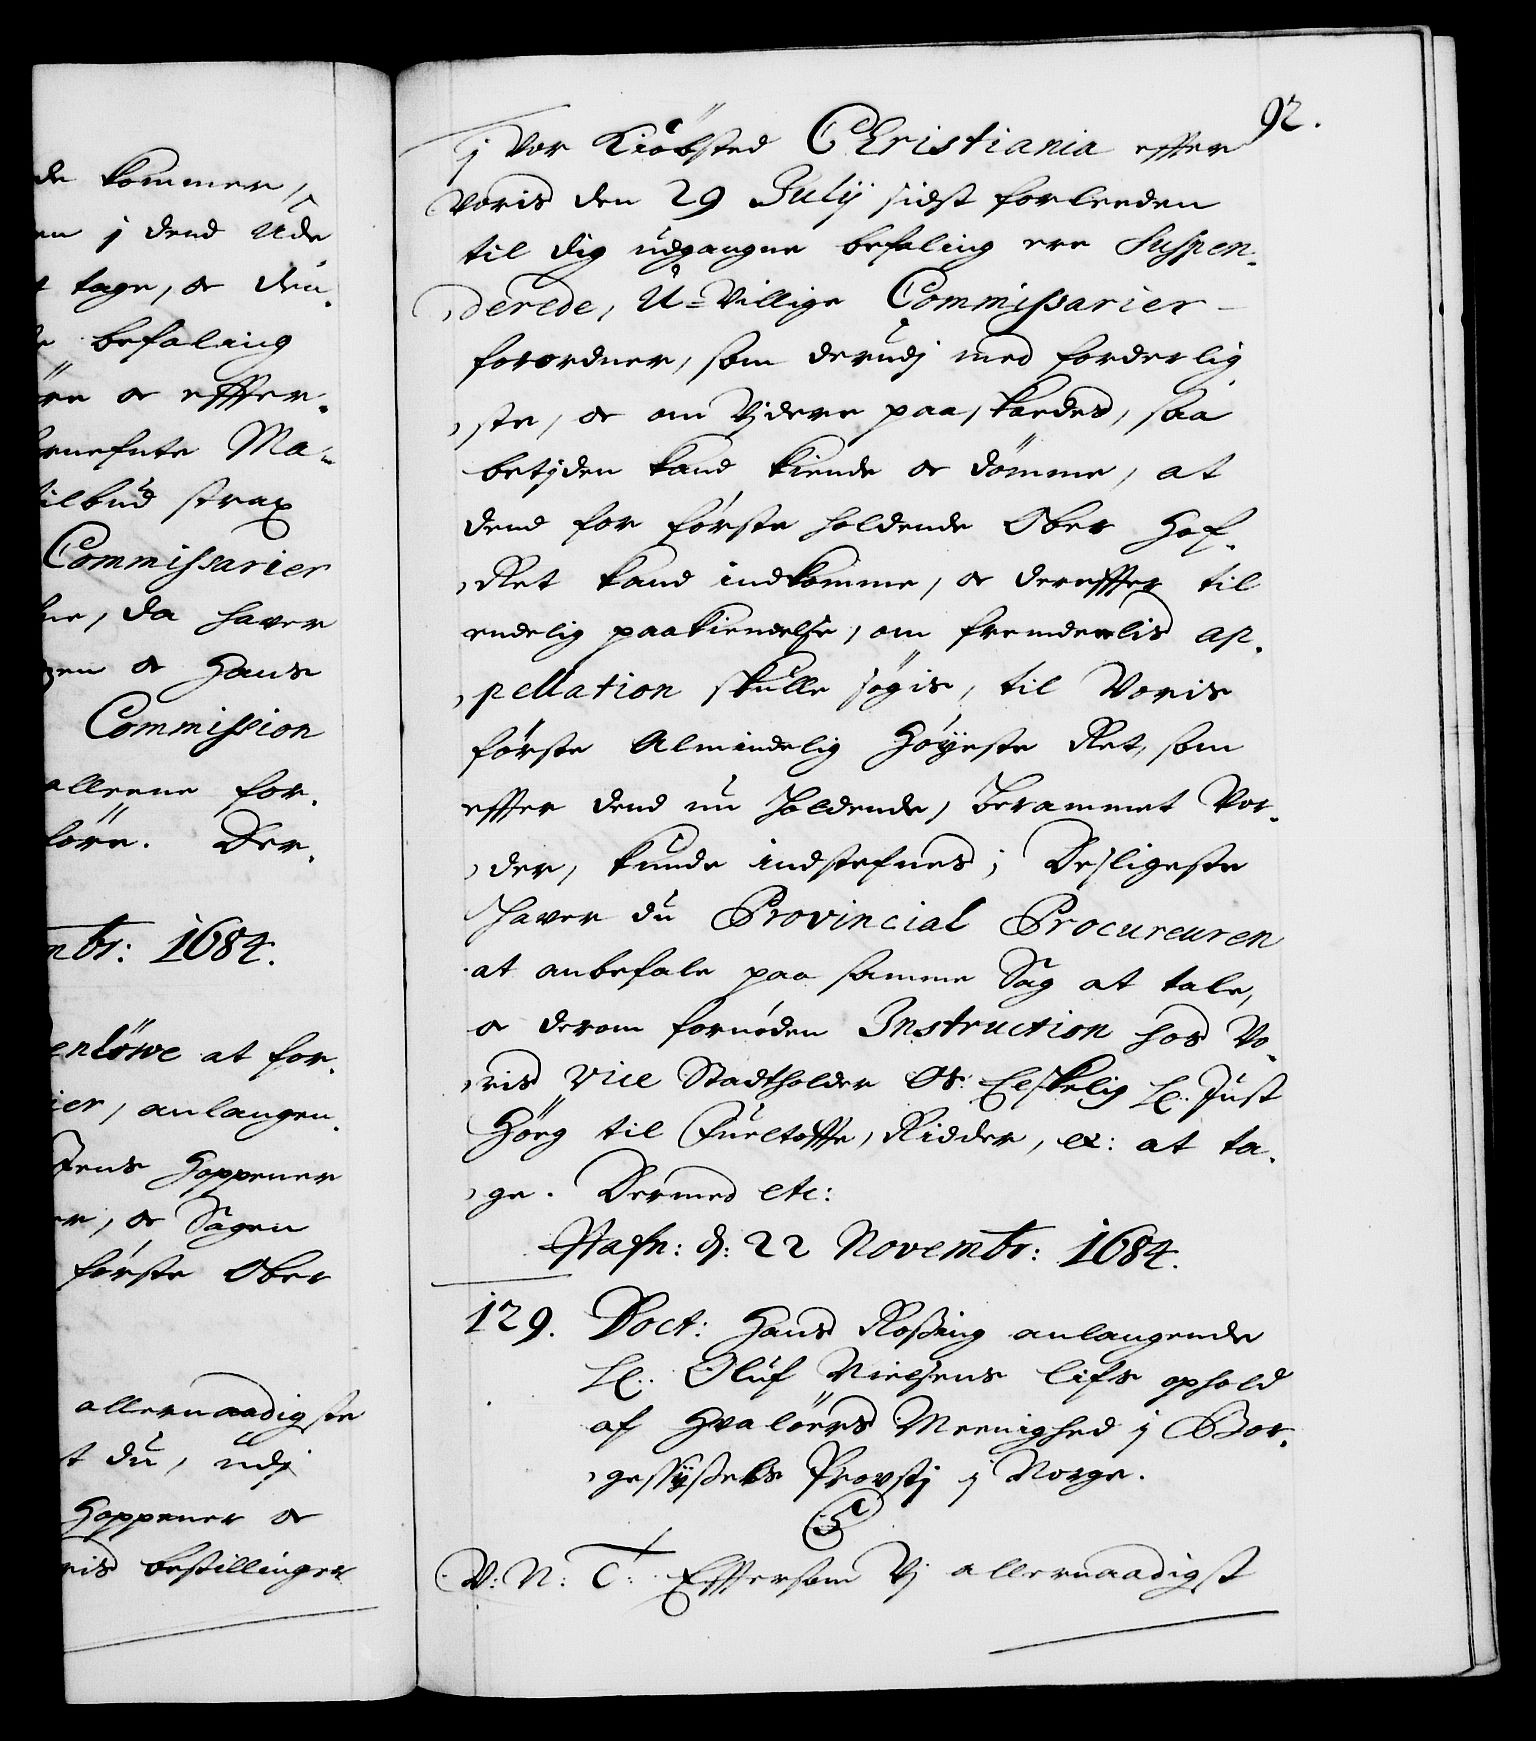 de kommer,
en j dend Ude
tage, oc den¬
befaling
öre oc effter¬
ernefnte Ma¬
tilbud strax
Commissarier
ne, da haver
gen oc Hans
Commission
alleene for¬
löre. Der¬
mbr: 1684.
enlöwe at for¬
ier, anlangen¬
Jens Hoppener
er, oc Sagen
første Ober
allernaadigste
t du, udj
Hoppener oc
ris bestillinger
92.
j Vor Kiöbsted CHristiania effter
Voris den 29 Julij sidst forleeden
til dig udgangne befaling ere Suspen¬
derede, U=Villige Commissarier
forordner, som derudj med forderlig
ste, oc om Vjdere paaskædes, saa
betjden kand kiende oc dömme, at
dend for første holdende Ober Hof¬
Ret kand indkomme, oc dereffter til
endelig paakiendelse, om fremdeelis ap¬
pellation skulle søgis, til Voris
første Almindelig Höyeste Ret, som
effter dend nu holdende, berammet Vor¬
der, kunde indstefnes; Desligeste
haver du Provincial Procureuren
at anbefale paa samme Sag at tale,
oc derom fornøden Instruction hos Vo¬
ris Vice Stadtholder Os: Elskelig Hr. Just
Höeg til Fueltofte, Ridder, etc: at ta¬
ge. Dermed etc:
Hafn: d: 22 Novembr: 1684.
129. Doct: Hans Rosing anlangende
Hr. Oluf Nielsens lifs ophold
af Hvalöers Meenighed j Bor¬
gesyssels Provstj j Norge.
C5
V: N: C: Effersom Vj allernaadigst